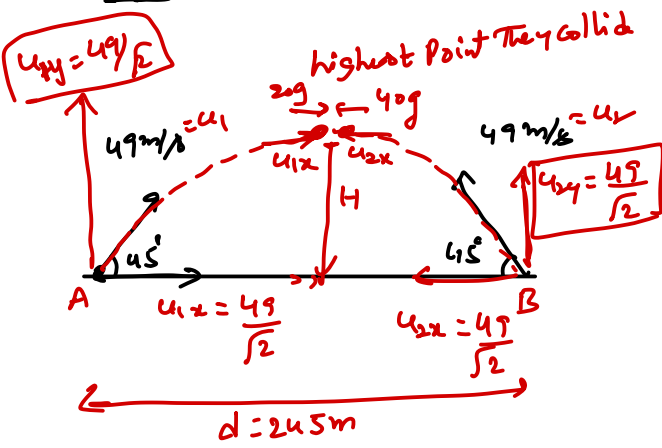 u₁y = 49/√2
highest Point They collide
20g
40g
49 m/s = u₁
49 m/s = u₂
u₁x
u₂x
H
u₂y = 49/√2
45°
45°
A
B
u₁x = 49/√2
u₂x = 49/√2
d = 245m